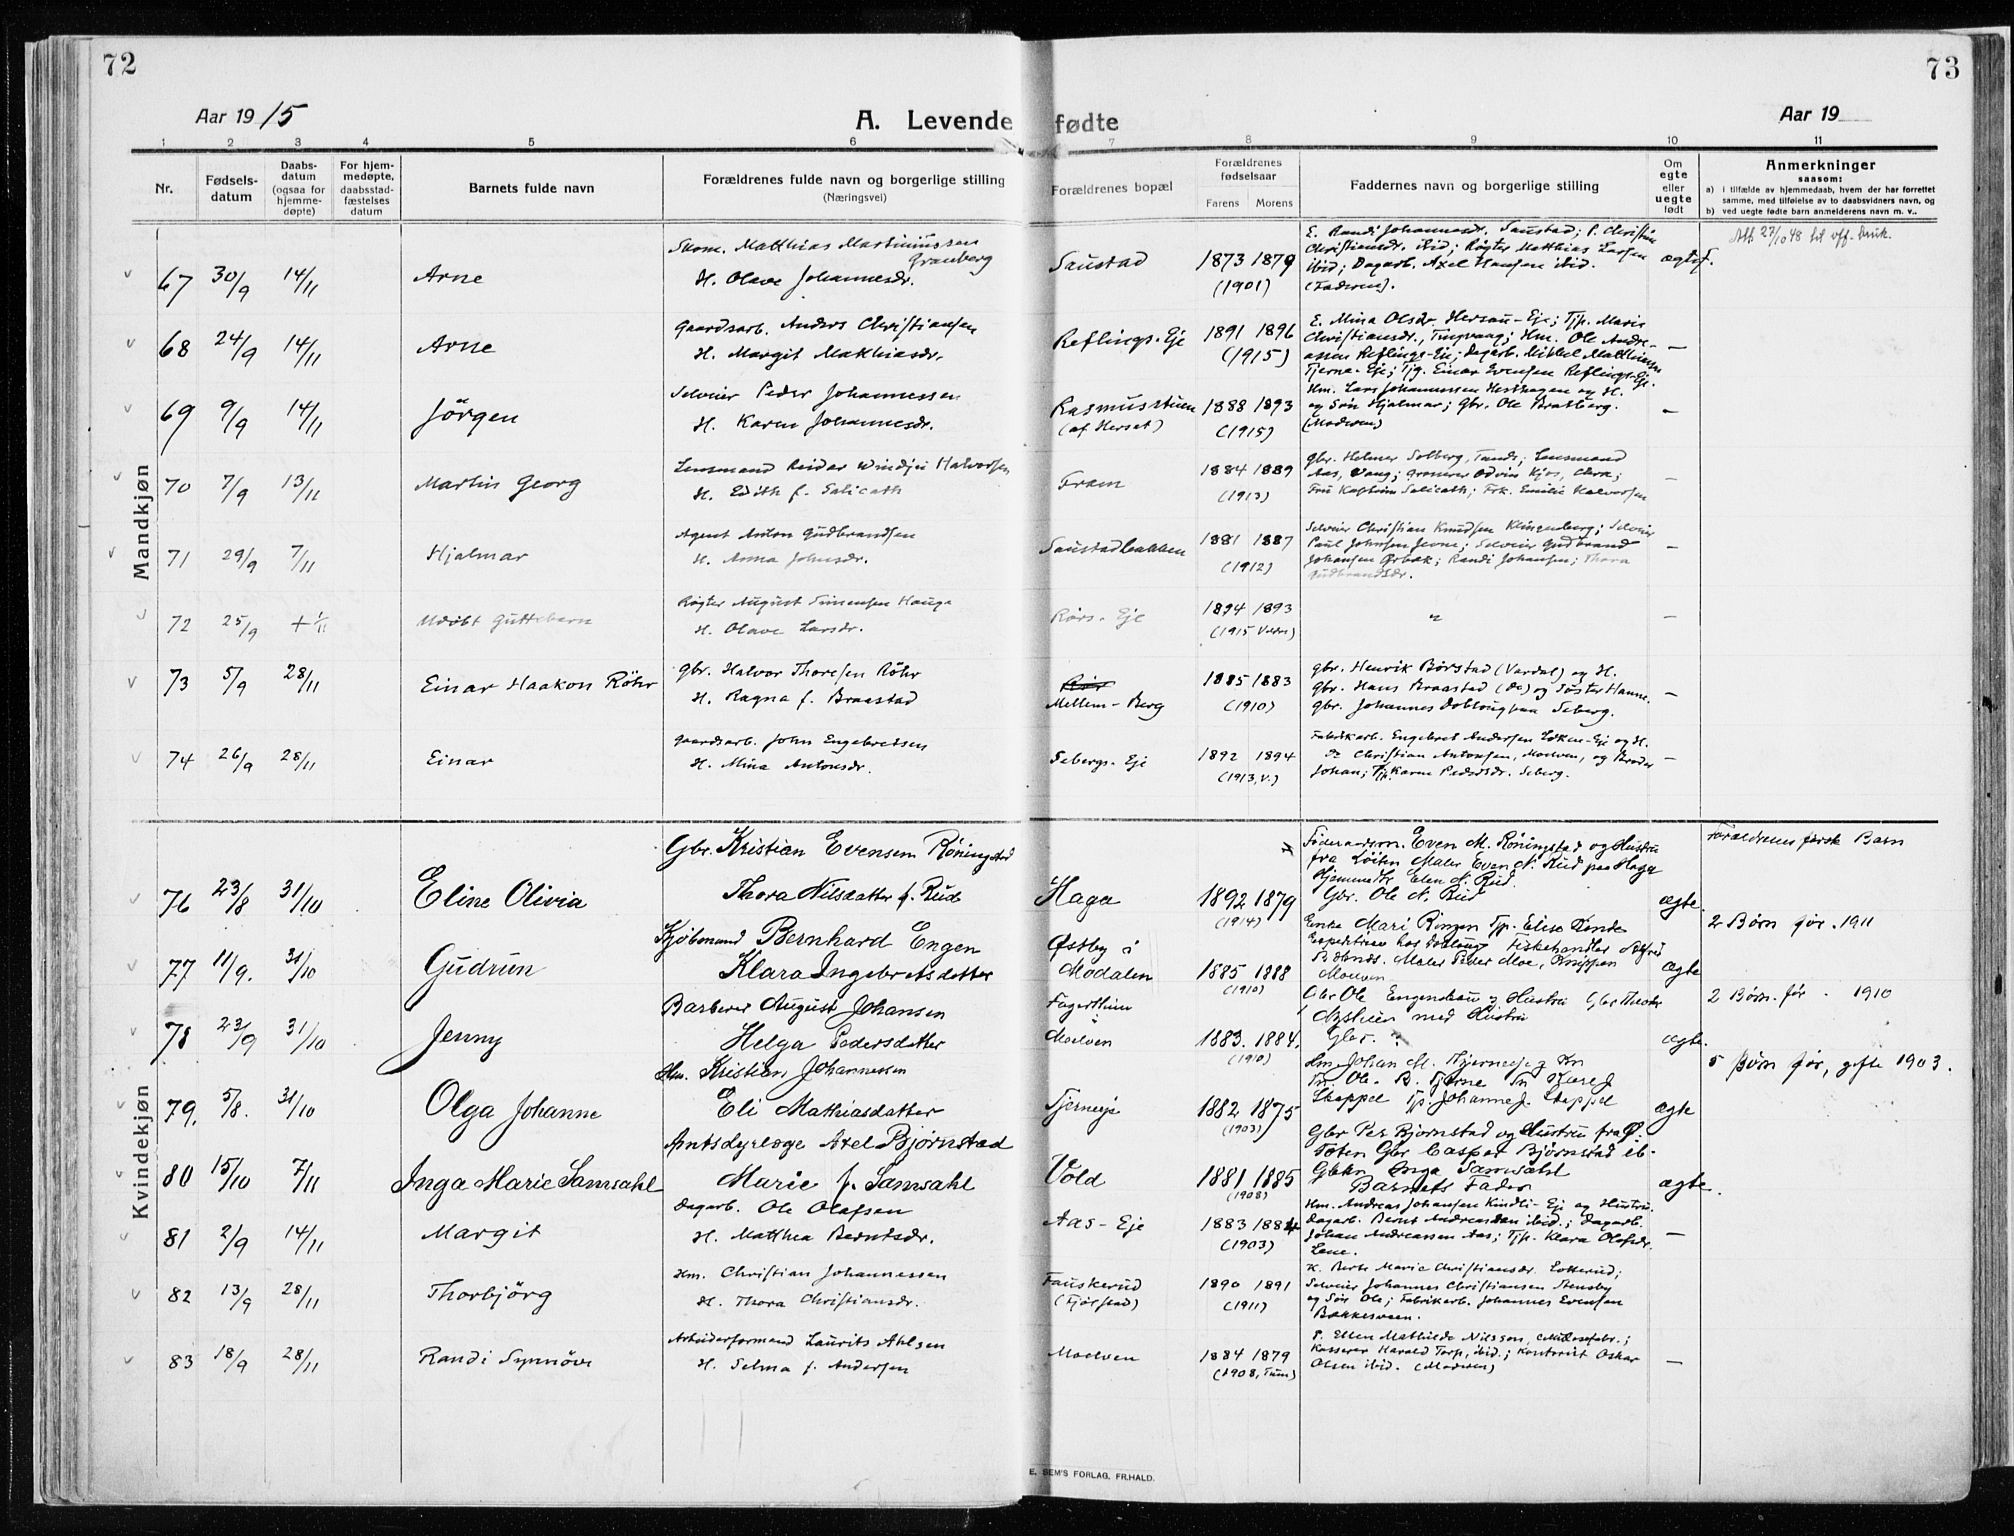 72
73
Aar 1915
A. Levende fødte
Aar 19
1 2 3 4 5 6 7 8 9 10 11
Nr.
Fødsels-
datum
Daabs-
datum
(ogsaa for
hjemme-
døpte)
For hjem-
medøpte,
daabsstad-
fæstelses
datum
Barnets fulde navn
Forældrenes fulde navn og borgerlige stilling
(Næringsvei)
Forældrenes bopæl
Forældrenes
fødselsaar
Farens Morens
Faddernes navn og borgerlige stilling
Om
egte
eller
uegte
født
Anmerkninger
saasom:
a) i tilfælde av hjemmedaab, hvem der har forrettet
samme, med tilføielse av to daabsvidners navn, og
b) ved uegte fødte barn anmelderens navn m. v..
Mandkjøn
67 30/9 14/11 Arne
Skom. Matthias Martiniussen
Granberg
H. Olave Johannesdr.
Saustad
1873 1879
(1901)
E. Randi Johannesdr. Saustad; P. Christine
Christiansdr. ibid; Røgter Matthias Larsen
ibid; Dagarb. Axel Hansen ibid.
(Faderen).
ægtef.
Att 27/10 48 til off. bruk.
68 24/9 14/11 Arne
Gaardsarb. Anders Christiansen
H. Margit Matthiasdr.
Reflings-Eje
1891 1896
(1915)
E. Mina Olsdr Hersau-Eje; Tjp. Marie
Christiansdr., Tingvang; Hm. Ole Andre-
assen Reflings-Eje; Dagarb. Mikkel Matthiessen
Tjerne-Eje; Tjg. Einar Evensen Reflings-Eje.
—
69 9/9 14/11 Jörgen
Selveier Peder Johannessen
H. Karen Johannesdr.
Rasmusstuen
(af Herset)
1888 1893
(1915)
Hm. Lars Johannessen Hesthagen og H.
og Søn Hjalmar; Gbr. Ole Bratberg.
(Moderen)
—
70 7/9 13/11 Martin Georg
Lensmand Reidar Windju Halvorsen
H. Edith f. Salicath
Fram
1884 1889
(1913)
Gbr. Helmer Solberg, Lensmand
Aas, Vang; Grosserer Odvin Kjos,
Fru Kaptein Salicath; Frk. Emilie Halvorsen
—
71 29/9 7/11 Hjalmar
Agent Anton Gudbrandsen
H. Anna Johnsdr.
Saustadbakken
1881 1887
(1912)
Selveier Christian Knudsen Klingenberg; Selveier
Paul Johnsen Jevne; Selveier Gudbrand
Johansen Ørbak; Randi Johansen; Thora
Gudbrandsdr.
—
72 25/9 + 1/11 Udøbt Guttebarn
Røgter August Simensen Hauge
H. Olave Larsdr.
Rørs-Eje
1894 1893
(1915 Valdres)
"
—
73 5/9 28/11 Einar Haakon Röhr
Gbr. Halvor Thoresen Röhr
H. Ragna f. Braastad
Mellem-Berg
1885 1883
(1910)
Gbr. Henrik Børstad (Vardal) og H.
Gbr. Hans Braastad (Do) og Søster Hanne.
Gbr. Johannes Dobloug paa Seberg.
—
74 26/9 28/11 Einar
Gaardsarb. John Engebretsen
H. Mina Antonsdr.
Sebergs-Eje
1892 1894
(1913, V.)
Fabrikarb. Engebret Andersen Løken-Eje og H.
Do Christian Antonsen, Moelven, og Broder
Johan; Tjp. Karne Pedersdr. Seberg.
—
Kvindekjøn
76 23/8 31/10 Eline Olivia
Gbr. Kristian Evensen Røningstad
Thora Nilsdatter f. Rud
Haga
1892 1879
(1914)
Føderaadsm. Even M. Røningstad og Hustru
fra Løiten Maler Even N. Rud paa Haga
Hjemmedtr Elen N. Rud.
Gbr. Ole N. Rud
ægte
Forældrenes første Barn
77 11/9. 31/10 Gudrun
Kjøbmand Bernhard Engen
Klara Ingebretsdatter
Østby i
Modalen
1885 1888
(1910)
Enke Mari Ringen Tjp. Elise Rønde
Expeditrise hos Dobloug Fiskehandler Alfred
Maler Peder Moe, Knippen
Moelven
ægte
2 Børn før. 1911
78 23/9 31/10 Jenny
Barberer August Johansen
Helga Pedersdatter
Fagerheim
Moelven
1883. 1884.
(1910)
Gbr Ole Engenshau og Hustru Gbr Theodor
Nysteien med Hustru
Gbr.
ægte.
2 Børn før. 1910
79. 5/8. 31/10 Olga Johanne
Hm. Kristian Johannessen
Eli Mathiasdatter
Tjerneje
1882 1875
(1903)
Hm Johan M. Tjerneje
Ole B. Tjerne
Skappel Tjp. Johanne J. Skappel
ægte
5 Børn før, gifte 1903.
80 15/10 7/11 Inga Marie Samsahl
Amtsdyrlæge Axel Bjørnstad
Marie f. Samsahl
Vold
1881 1885
(1908)
Gbr Per Bjørnstad og Hustru fra Ø.
Toten Gbr Casper Bjørnstad ib-
Inga Samsahl
Barnets Fader
ægte.
81 2/9 14/11 Margit
Dagarb. Ole Olafsen
H. Matthea Berntsdr.
Aas-Eje
1883 1884
(1903)
Hm. Andreas Johansen Kindli-Eje og Hustru.
Dagarb. Bernt Andreassen ibid.; Dagarb.
Johan Andreassen Aas; Tjp. Klara Olofsdr.
Lene.
—
82 13/9 28/11 Thorbjörg
Hm. Christian Johannessen
H. Thora Christiansdr.
Fauskerud
(Fjölstad)
1890 1891
(1911)
K. Berte Marie Christiansdr. Lotterud;
Selveier Johannes Christiansen Stensby
og Søn Ole; Fabrikarb. Johannes Evensen
Bakkesveen.
83 18/9 28/11 Randi Synnöve
Arbeiderformand Laurits Ahlsen
H. Selma f. Andersen
Moelven
1884 1879
(1908, Furn)
P. Ellen Mathilde Nilsson,
Kasserer Harald Torp, ibid.; Kontorist Oskar
Olsen ibid. (Moderen)
—
E. SEM'S FORLAG, FR.HALD.